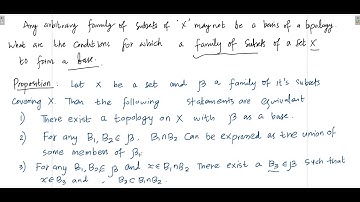 Any arbitrary family of subsets of 'X' may not be a basis of a topology.
What are the conditions for which a family of subsets of a set X
to form a base.
Proposition: Let X be a set and β a family of it's subsets
covering X. Then the following statements are equivalent
1) There exist a topology on X with β as a base.
2) For any B₁, B₂ ∈ β. B₁∩B₂ Can be expressed as the union of
some members of β.
3) For any B₁, B₂ ∈ β and x ∈ B₁∩B₂ There exist a B₃ ∈ β such that
x ∈ B₃ and B₃ ⊂ B₁∩B₂.